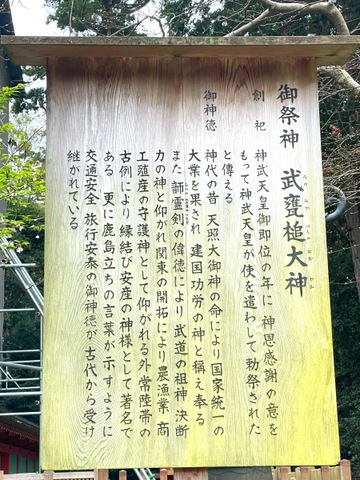 御祭神 武甕槌大神
たけみかづちのおおかみ
創祀 神武天皇御即位の年に 神恩感謝の意を
もって神武天皇が使を遣わして勅祭された
と傳える
御神徳 神代の昔 天照大御神の命により國家統一の
大業を果され 建国功労の神と稱え奉る
また 韴霊剣の偉徳により 武道の祖神 決断
力の神と仰がれ関東の開拓により農漁業 商
工殖産の守護神として仰がれる外 常陸帯の
古例により縁結び安産の神様として著名で
ある 更に鹿島立ちの言葉が示すように
交通安全 旅行安泰の御神徳が古代から受け
継がれている